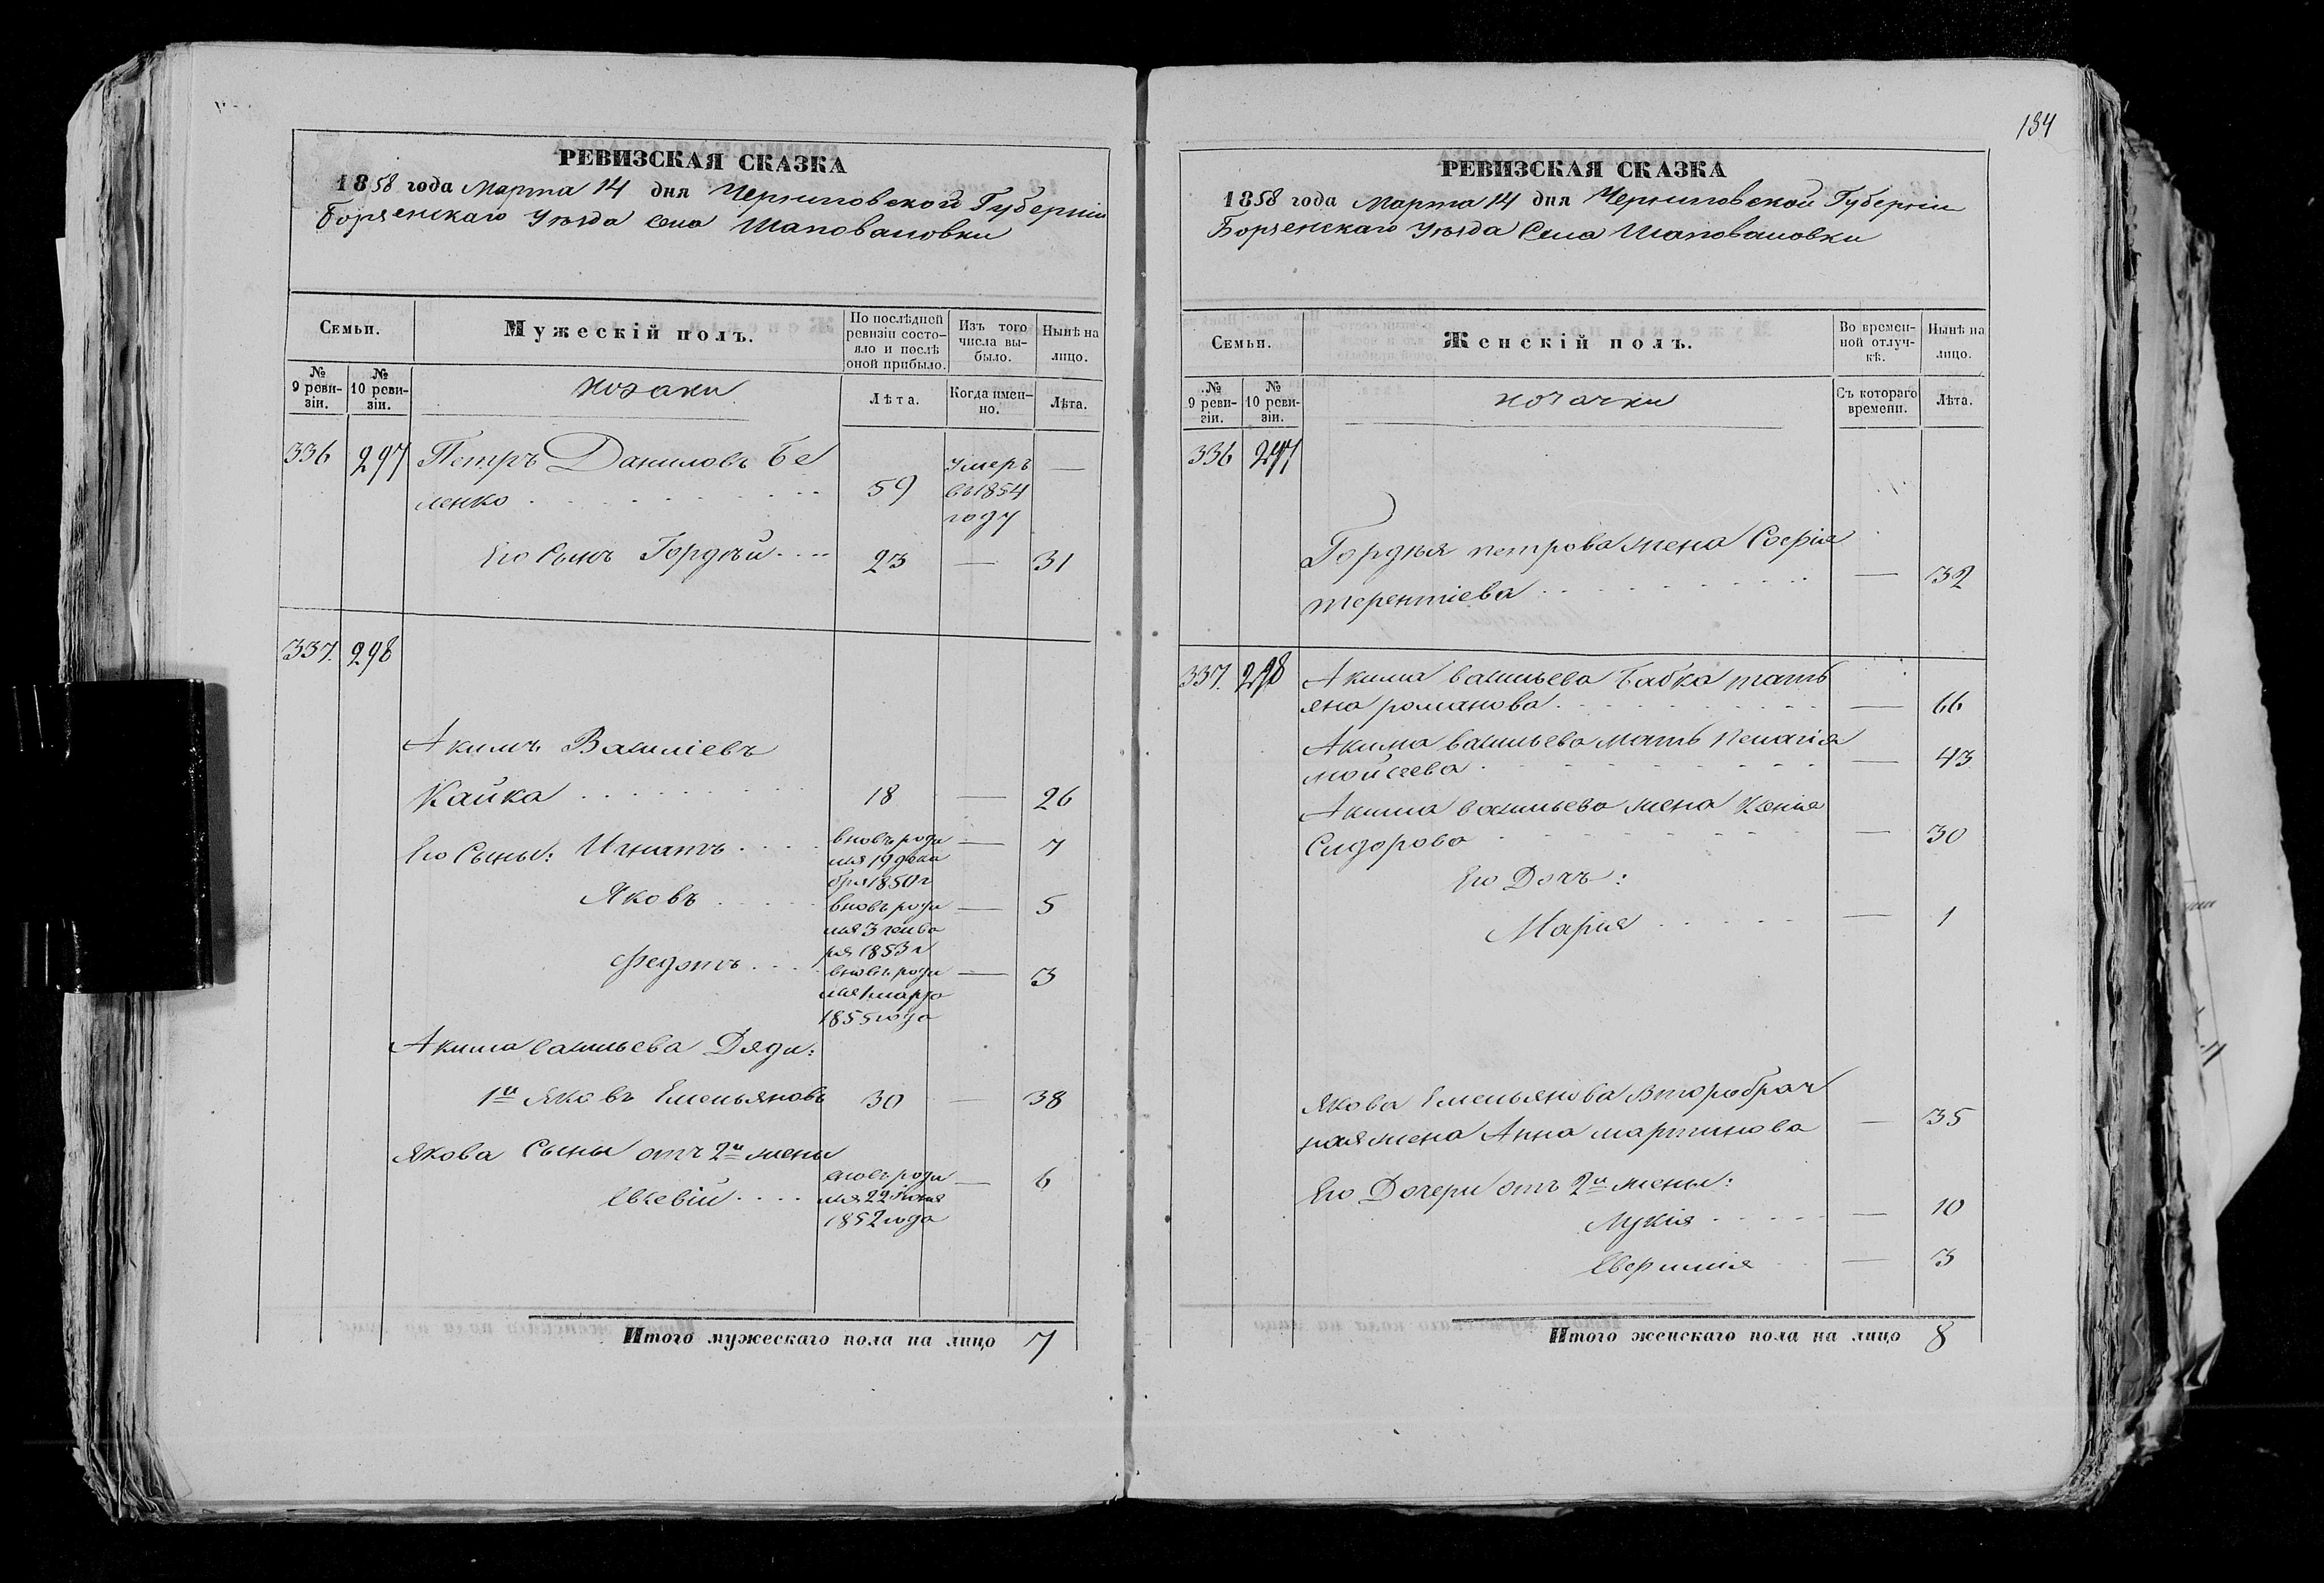 РЕВИЗСКАЯ СКАЗКА
1858 года Марта 14 дня Черниговской Губерніи
Борзенскаго Уѣзда села Шаповаловки
Семьи.
Мужескій полъ.
По послѣдней ревизіи состояло и послѣ оной прибыло.
Изъ того числа выбыло.
Нынѣ на лицо.
№ 9 ревизіи.
№ 10 ревизіи.
козаки
Лѣта.
Когда именно.
Лѣта.
336 297 Петръ Даниловъ Бе
ленко 59 умеръ въ 1854 году —
Его Сынъ Гордѣй 23 — 31
337. 298
Акимъ Василіевъ
Кайка 18 — 26
Его Сыны: Игнатъ вновь роди лся 19 дека бря 1850 г — 7
Яковъ вновь роди лся 3 генва ря 1853 г — 5
Федотъ вновь роди лся 1 марта 1855 года — 3
Акима васильева Дяди:
1й Яковъ Емельяновъ 30 — 38
Якова Сыны отъ 2й жены
Евсевій вновь роди лся 22 Іюня 1852 года — 6
Итого мужескаго пола на лицо 7
134
РЕВИЗСКАЯ СКАЗКА
1858 года Марта 14 дня Черниговской Губерніи
Борзенскаго Уѣзда Села Шаповаловки
Семьи.
Женскій полъ.
Во временной отлучкѣ.
Нынѣ на лицо.
№ 9 ревизіи.
№ 10 ревизіи.
козачки
Съ котораго времени.
Лѣта.
336 297
Гордѣя петрова жена Софія
терентіева — 32
337. 298 Акима васильева бабка тать
яна романова — 66
Акима васильева мать Пелагія
мойсеева — 43
Акима васильева жена Ксенія
Сидорова — 30
Его Дочь:
Марія — 1
Якова Емельянова Второбрач
ная жена Анна мартинова — 35
Его Дочери отъ 2й жены:
Лукія — 10
Евфимія — 3
Итого женскаго пола на лицо 8